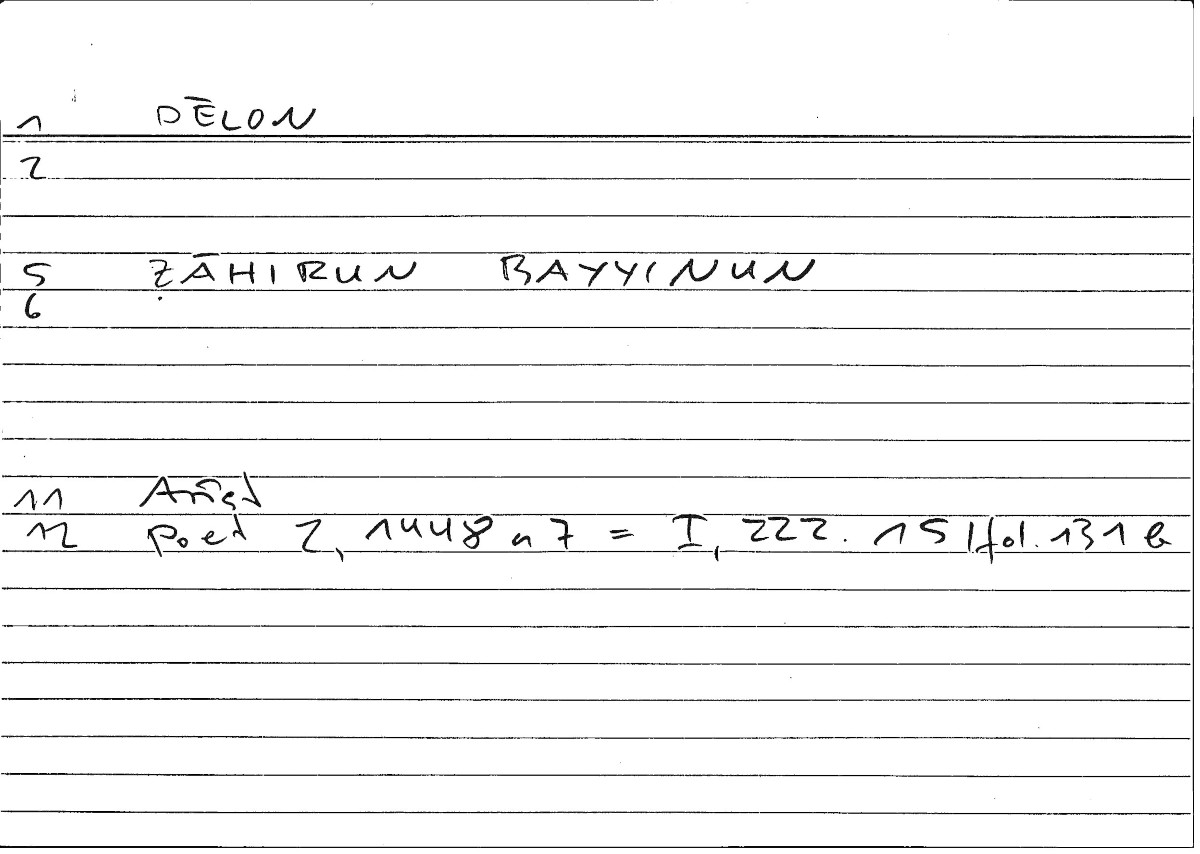 1 DĒLON
2
5 ẒĀHIRUN BAYYINUN
6
11
12 Poet 2, 1448 a 7 = I, 222. 15 / fol. 131 b